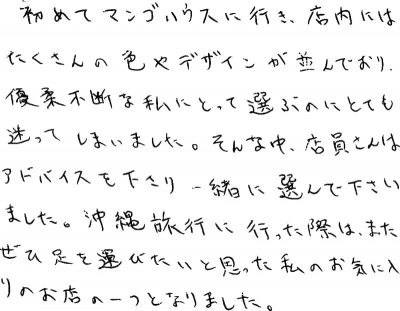 初めてマンゴハウスに行き、店内には
たくさんの色やデザインが並んでおり、
優柔不断な私にとって選ぶのにとても
迷ってしまいました。そんな中、店員さんは
アドバイスを下さり一緒に選んで下さい
ました。沖縄旅行に行った際は、また
ぜひ足を運びたいと思った私のお気に入
りのお店の一つとなりました。